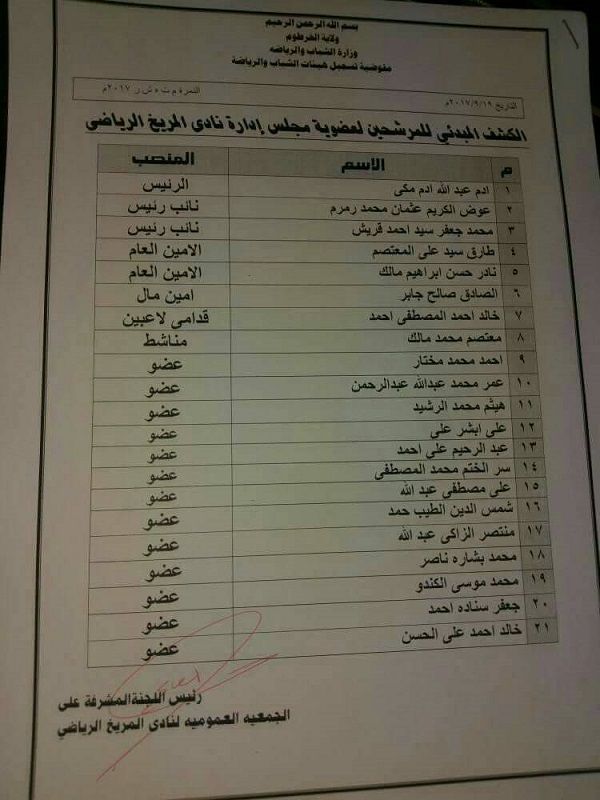 بسم الله الرحمن الرحيم
ولاية الخرطوم
وزارة الشباب والرياضه
مفوضية تسجيل هيئات الشباب والرياضة
التاريخ ٢٠١٧/٩/١٩م النمرة م ت ه ش ر ٢٠١٧م
الكشف المبدئي للمرشحين لعضوية مجلس إدارة نادى المريخ الرياضي
م الاسم المنصب
١ ادم عبد الله ادم مكى الرئيس
٢ عوض الكريم عثمان محمد رمرم نائب رئيس
٣ محمد جعفر سيد احمد قريش نائب رئيس
٤ طارق سيد على المعتصم الامين العام
٥ نادر حسن ابراهيم مالك الامين العام
٦ الصادق صالح جابر امين مال
٧ خالد احمد المصطفى احمد قدامى لاعبين
٨ معتصم محمد مالك مناشط
٩ احمد محمد مختار عضو
١٠ عمر محمد عبدالله عبدالرحمن عضو
١١ هيثم محمد الرشيد عضو
١٢ على ابشر على عضو
١٣ عبد الرحيم على احمد عضو
١٤ سر الختم محمد المصطفى عضو
١٥ على مصطفى عبد الله عضو
١٦ شمس الدين الطيب حمد عضو
١٧ منتصر الزاكى عبد الله عضو
١٨ محمد بشاره ناصر عضو
١٩ محمد موسى الكندو عضو
٢٠ جعفر سناده احمد عضو
٢١ خالد احمد على الحسن عضو
رئيس اللجنةالمشرفة على
الجمعيه العموميه لنادى المريخ الرياضي